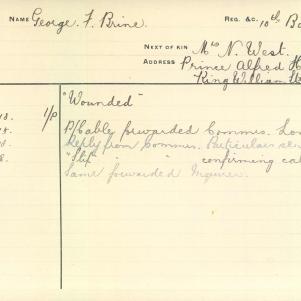 NAME George. F. Brine. REG. &c. 10th Ba
NEXT OF KIN Mrs N. West.
ADDRESS Prince Alfred H
King William St
"Wounded"
18. 1/p P/Cable forwarded Commis. Lon
18. Reply from Commis. Particulars
8. "Slip" " " confirming cab
Same forwarded Inquirer.